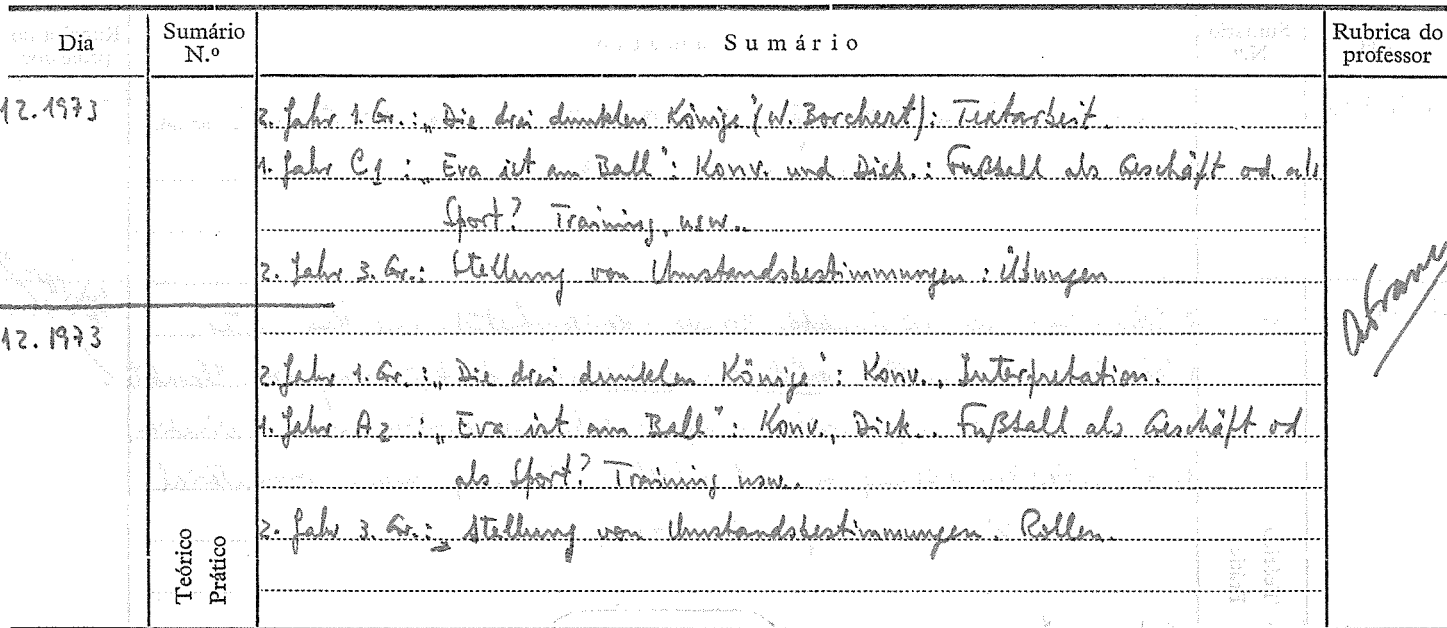 Dia
Sumário N.º
Sumário
Rubrica do professor
12.1973
2. Jahr 1. Gr.: „Die drei dunklen Könige" (W. Borchert): Textarbeit.
1. Jahr C1 : „Eva ist am Ball": Konv. und Disk.: Fußball als Geschäft od. als
Sport? Training, usw..
2. Jahr 3. Gr.: Stellung von Umstandsbestimmungen : Übungen
12.1973
2. Jahr 1. Gr. : „Die drei dunklen Könige": Konv., Interpretation.
1. Jahr A2 : „Eva ist am Ball": Konv., Disk.. Fußball als Geschäft od
als Sport? Training usw..
2. Jahr 3. Gr.: Stellung von Umstandsbestimmungen. Rollen.
Teórico
Prático